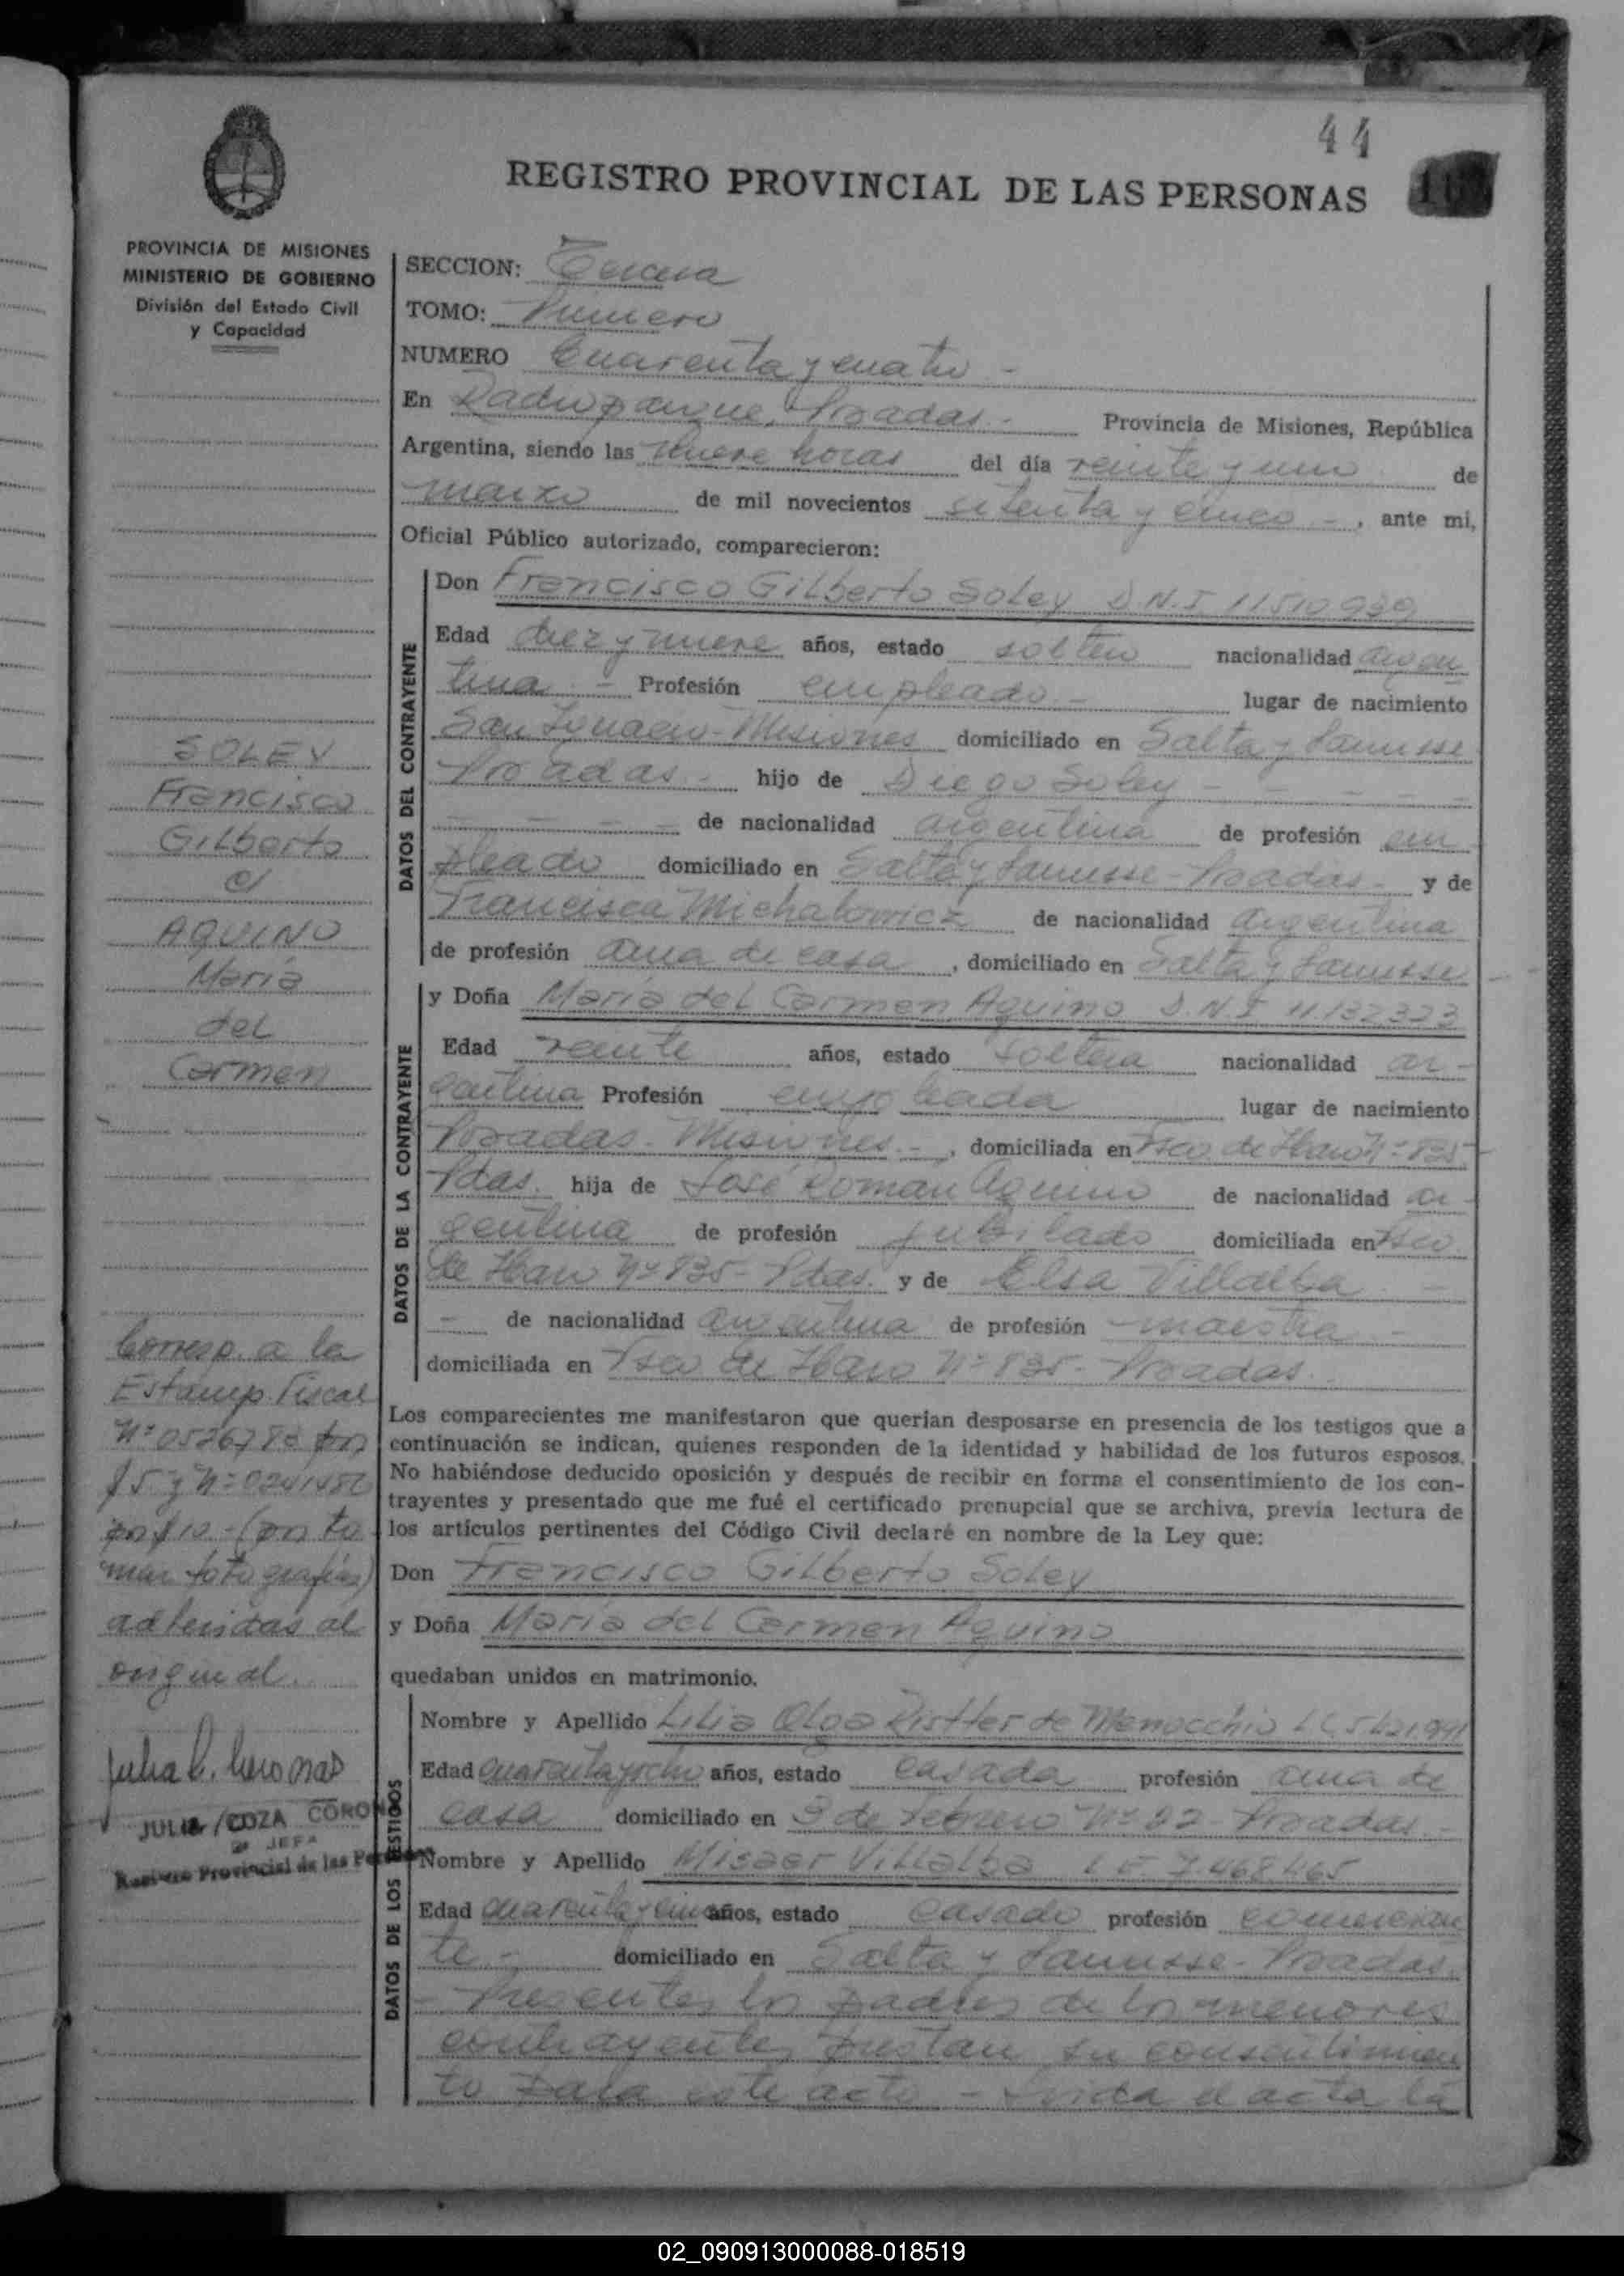 44
REGISTRO PROVINCIAL DE LAS PERSONAS
PROVINCIA DE MISIONES
MINISTERIO DE GOBIERNO
División del Estado Civil
y Capacidad
SOLEY
Francisco
Gilberto
c/
AQUINO
María
del
Carmen
Corresp. a la
Estamp. Fiscal
adheridas al
original.
JULIA
JEFA
Registro Provincial de las Personas
SECCION: Tercera
TOMO: Primero
NUMERO Cuarenta y cuatro -
En Radioparque, Posadas.- Provincia de Misiones, República
Argentina, siendo las nueve horas del día veinte y uno de
marzo de mil novecientos setenta y cinco -, ante mi,
Oficial Público autorizado, comparecieron:
DATOS DEL CONTRAYENTE
Don Francisco Gilberto Soley D.N.I 11510939
Edad diez y nueve años, estado soltero nacionalidad argen
tina - Profesión empleado.- lugar de nacimiento
San Ignacio - Misiones domiciliado en Salta y Lanusse
Posadas.- hijo de Diego Soley - - - - -
- - - - de nacionalidad argentina de profesión em
pleado domiciliado en Salta y Lanusse - Posadas - y de
Francisca Michalowicz de nacionalidad argentina
de profesión ama de casa, domiciliado en Salta y Lanusse
DATOS DE LA CONTRAYENTE
y Doña María del Carmen Aquino D.N.I 11.132.323
Edad veinte años, estado soltera nacionalidad ar-
gentina Profesión empleada lugar de nacimiento
Posadas - Misiones.-, domiciliada en Fsco de Haro Nº 835
Pdas. hija de José Román Aquino de nacionalidad ar-
gentina de profesión jubilado domiciliada en Fsco
de Haro Nº 835 - Pdas. y de Elsa Villalba -
- de nacionalidad argentina de profesión maestra -
domiciliada en Fsco de Haro Nº 835 - Posadas.
Los comparecientes me manifestaron que querían desposarse en presencia de los testigos que a
continuación se indican, quienes responden de la identidad y habilidad de los futuros esposos.
No habiéndose deducido oposición y después de recibir en forma el consentimiento de los con-
trayentes y presentado que me fué el certificado prenupcial que se archiva, previa lectura de
los artículos pertinentes del Código Civil declaré en nombre de la Ley que:
Don Francisco Gilberto Soley
y Doña María del Carmen Aquino
quedaban unidos en matrimonio.
DATOS DE LOS TESTIGOS
Nombre y Apellido Lilia Olga Ristter de Menocchio
Edad cuarenta y ocho años, estado casada profesión ama de
casa domiciliado en 3 de Febrero Nº 22 - Posadas.-
Nombre y Apellido Misael Villalba L.E. 7.468.465
Edad cuarenta y cinco años, estado casado profesión comercian
te - domiciliado en Salta y Lanusse - Posadas.
- Presentes los padres de los menores
contrayentes prestan su consentimien
to para este acto - Leída el acta la
02_090913000088-018519